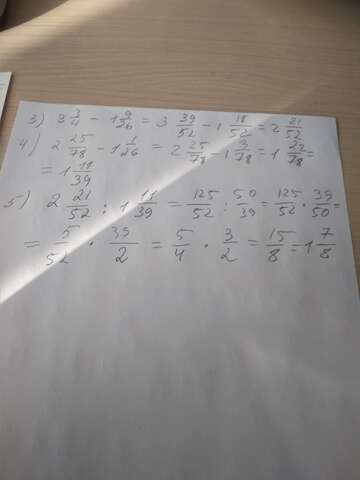 3) 3 3/4 - 1 9/26 = 3 39/52 - 1 18/52 = 2 21/52
4) 2 25/78 - 1 1/26 = 2 25/78 - 1 3/78 = 1 22/78 =
= 1 11/39
5) 2 21/52 : 1 11/39 = 125/52 : 50/39 = 125/52 · 39/50 =
= 5/52 · 39/2 = 5/4 · 3/2 = 15/8 = 1 7/8